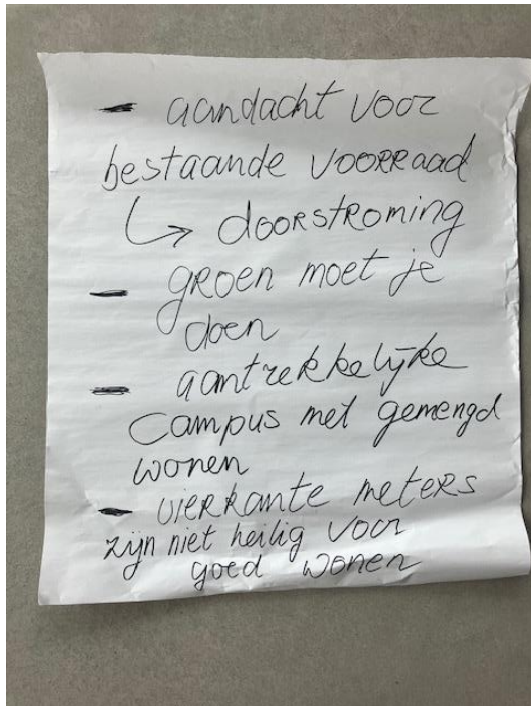 - aandacht voor
bestaande voorraad
↳ doorstroming
- groen moet je
doen
- aantrekkelijke
campus met gemengd
wonen
- vierkante meters
zijn niet heilig voor
goed wonen